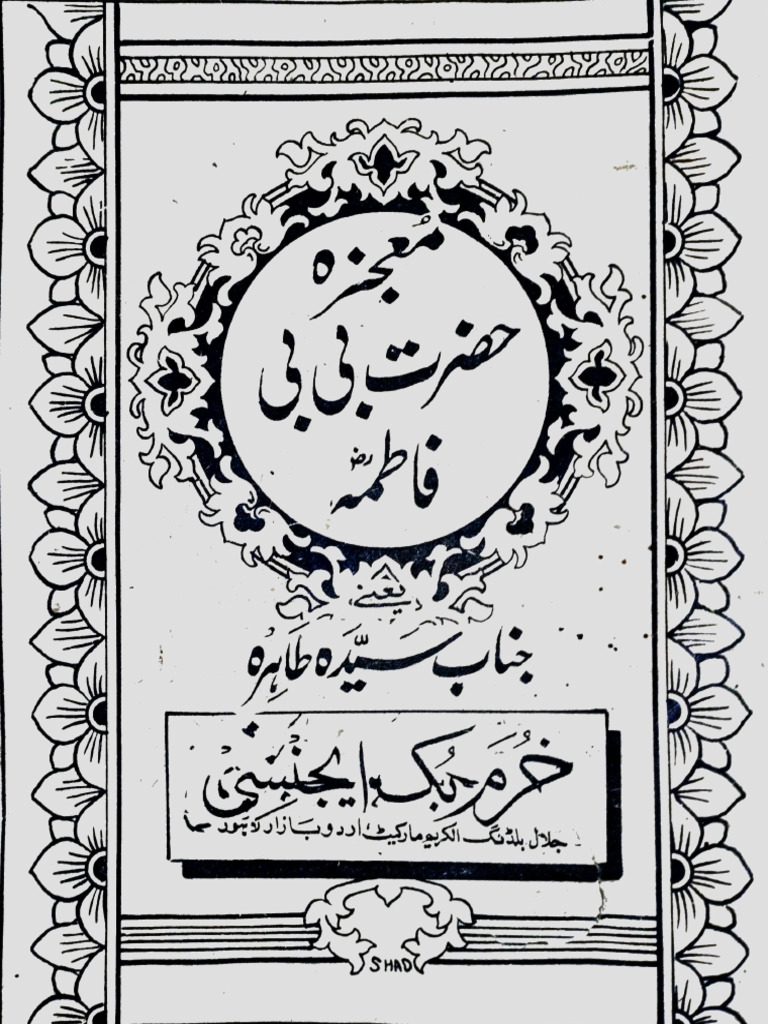 معجزہ
حضرت بی بی
فاطمہؓ
یعنی
جناب سیّدہ طاہرہ
خرم بک ایجنسی
جلال بلڈنگ الکریم مارکیٹ اردو بازار لاہور
SHAD